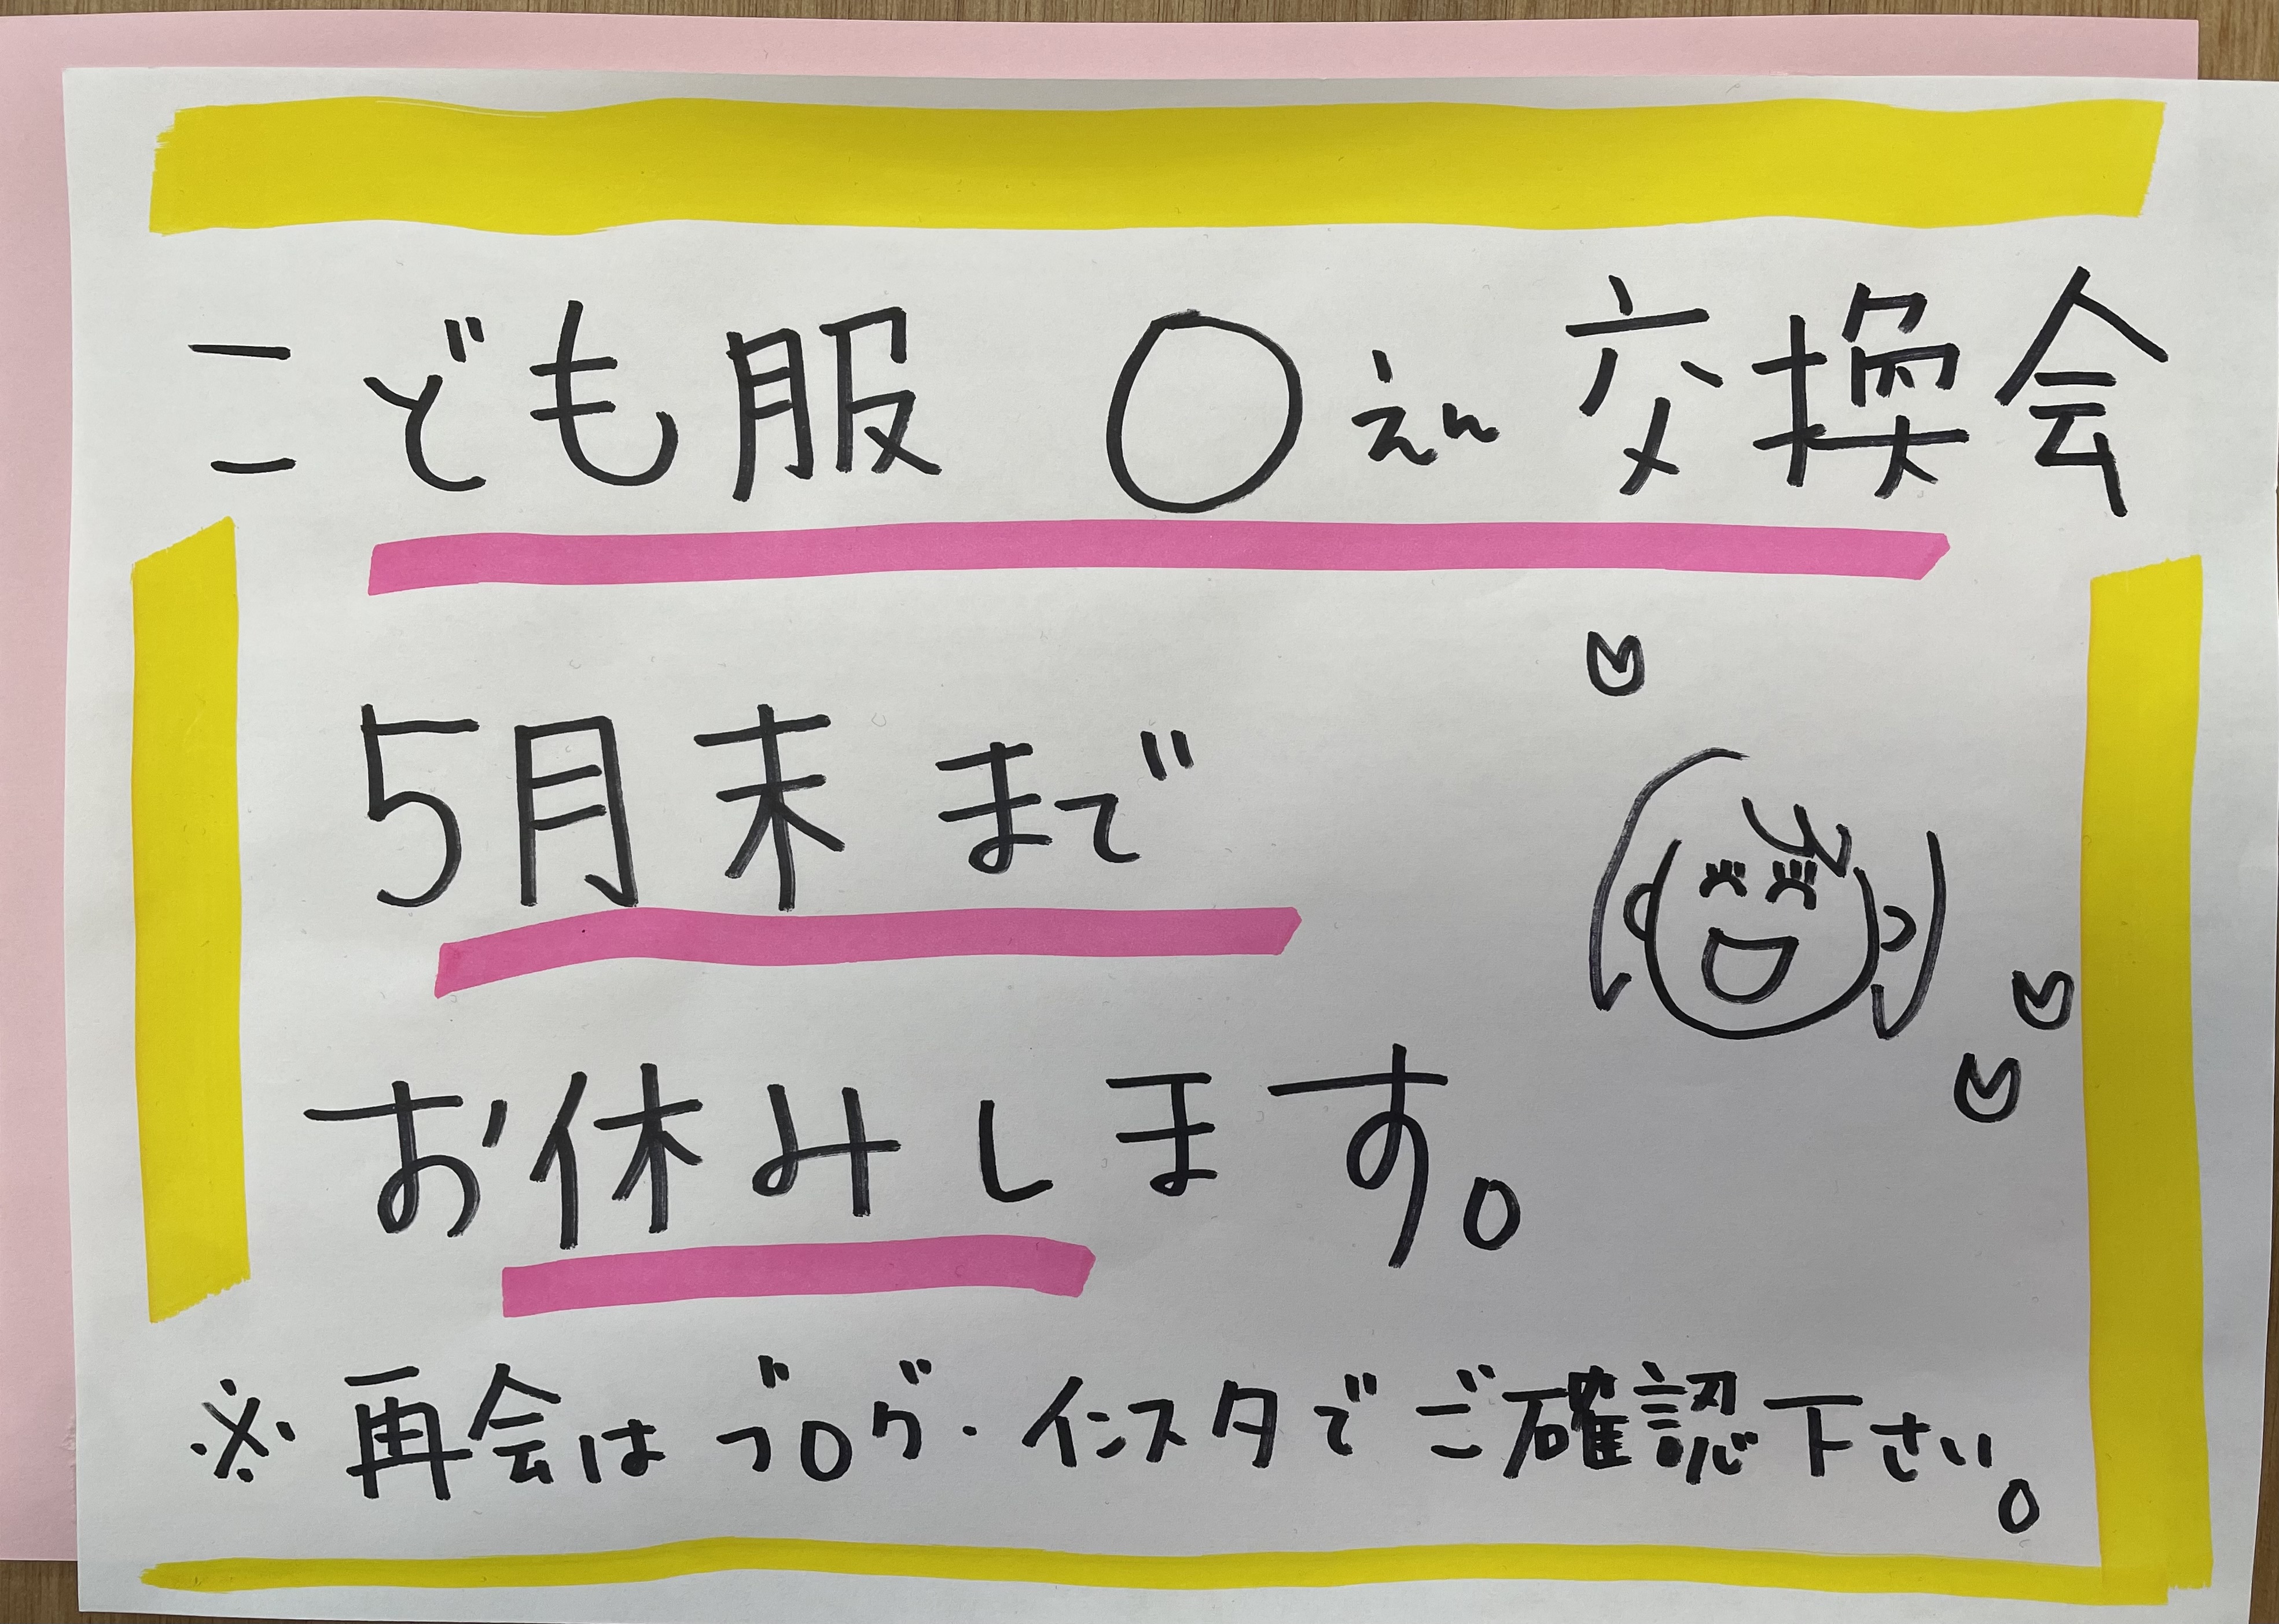 こども服 〇えん交換会
5月末まで
お休みします。
※再会はブログ・インスタでご確認下さい。